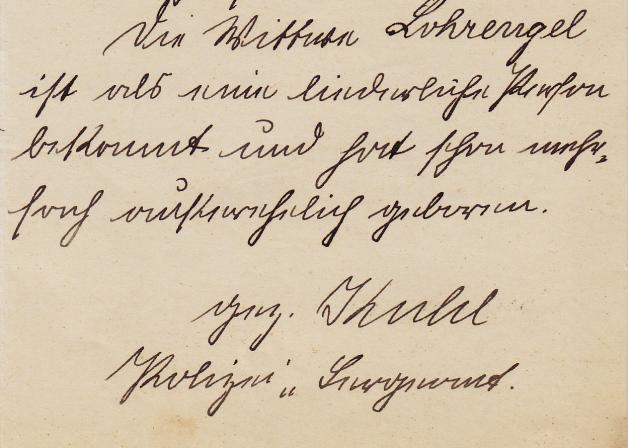 Die Wittwe Lohrengel
ist als eine liederliche Person
bekannt und hat schon mehr=
fach außerehelich geboren.
gez.
Polizei=Sergeant.